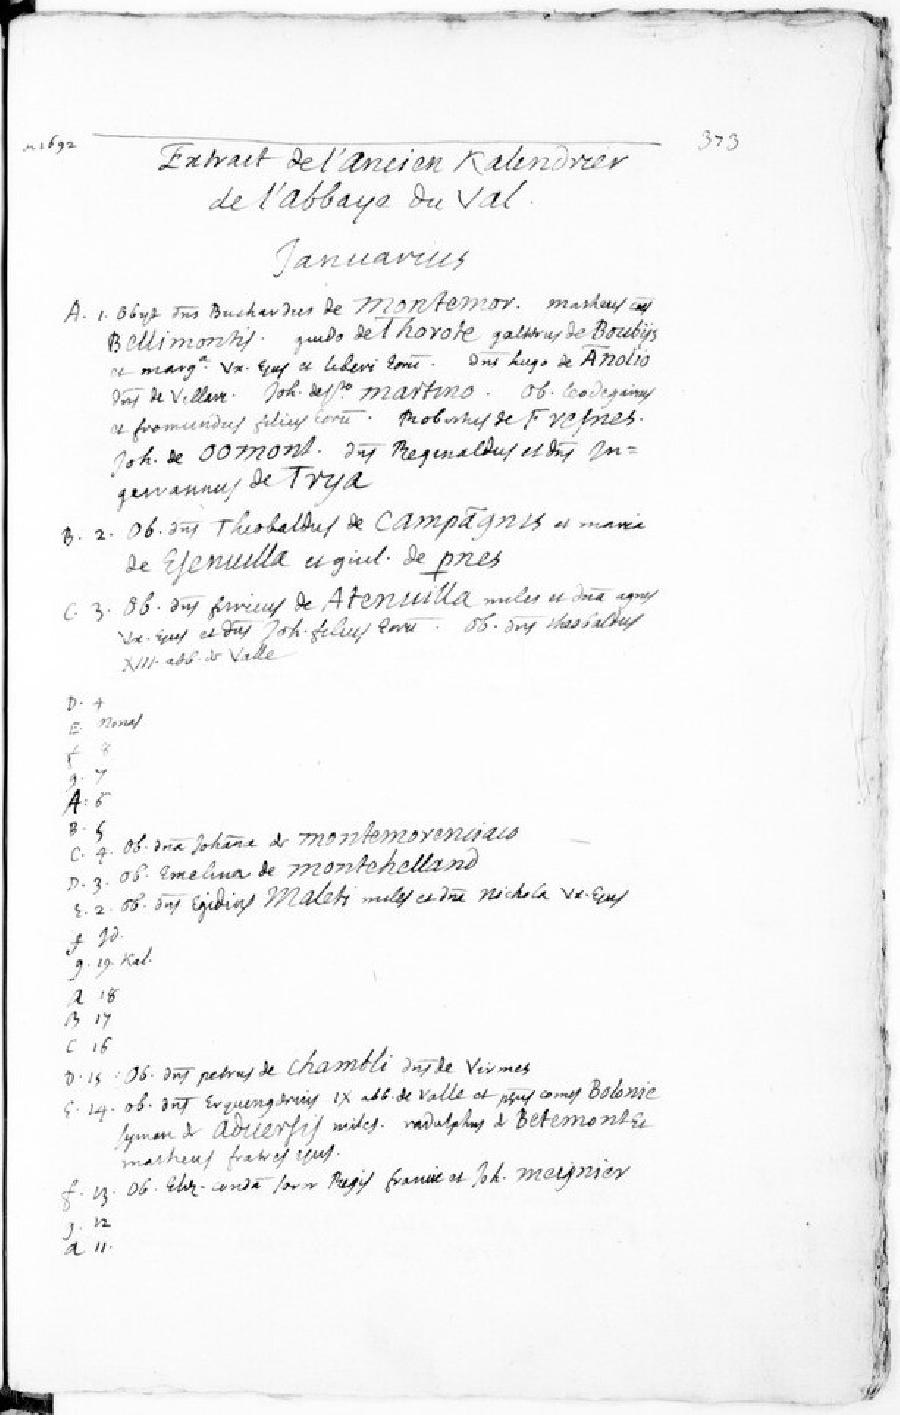 373
Extrait de l'ancien Kalendrier
de l'abbaye du Val.
Januarius
A. 1. Obyt dns Buchardus de Montemor. matheus
Bellimontis. guido de Thorote galterus de Boubijs
et marg^a. Vx. Ejus et liberi eorū. dns hugo de Anolio
dns de Villare. Joh. de s^to martino. Ob. Leodegarius
et fromundus filius eorū. Robertus de Fresnes.
Joh. de Oomont. dns Reginaldus et dns In=
gerrannus de Trya
B. 2. Ob. dns Theobaldus de Campāgnis et maria
de Esenvilla et guil. de pnes
C. 3. Ob. dns de Atenvilla miles et dna agnes
Vx. ejus et dns Joh. filius eorū. Ob. dns theobaldus
XIII. abb. de Valle
D. 4
E Nonas
f 8
g. 7
A. 6
B. 5
C. 4. Ob. dna Johāna de montemorenciaco
D. 3. Ob. Emelina de montchelland
E. 2. Ob. dns Egidius Maleti miles et dna Nichola Vx. Ejus
f Jd.
g. 19. Kal.
a 18
B 17
C 16
D. 15. Ob. dns petrus de Chambli dns de Virmes
E. 14. ob. dns IX abb. de Valle et comes Bolonie
Symon de Aduersis miles. radulphus de Betemont et
matheus fratres ejus.
f. 13. Ob. Eliz. condā soror Regis francie et Joh. meignier
g. 12
a 11.